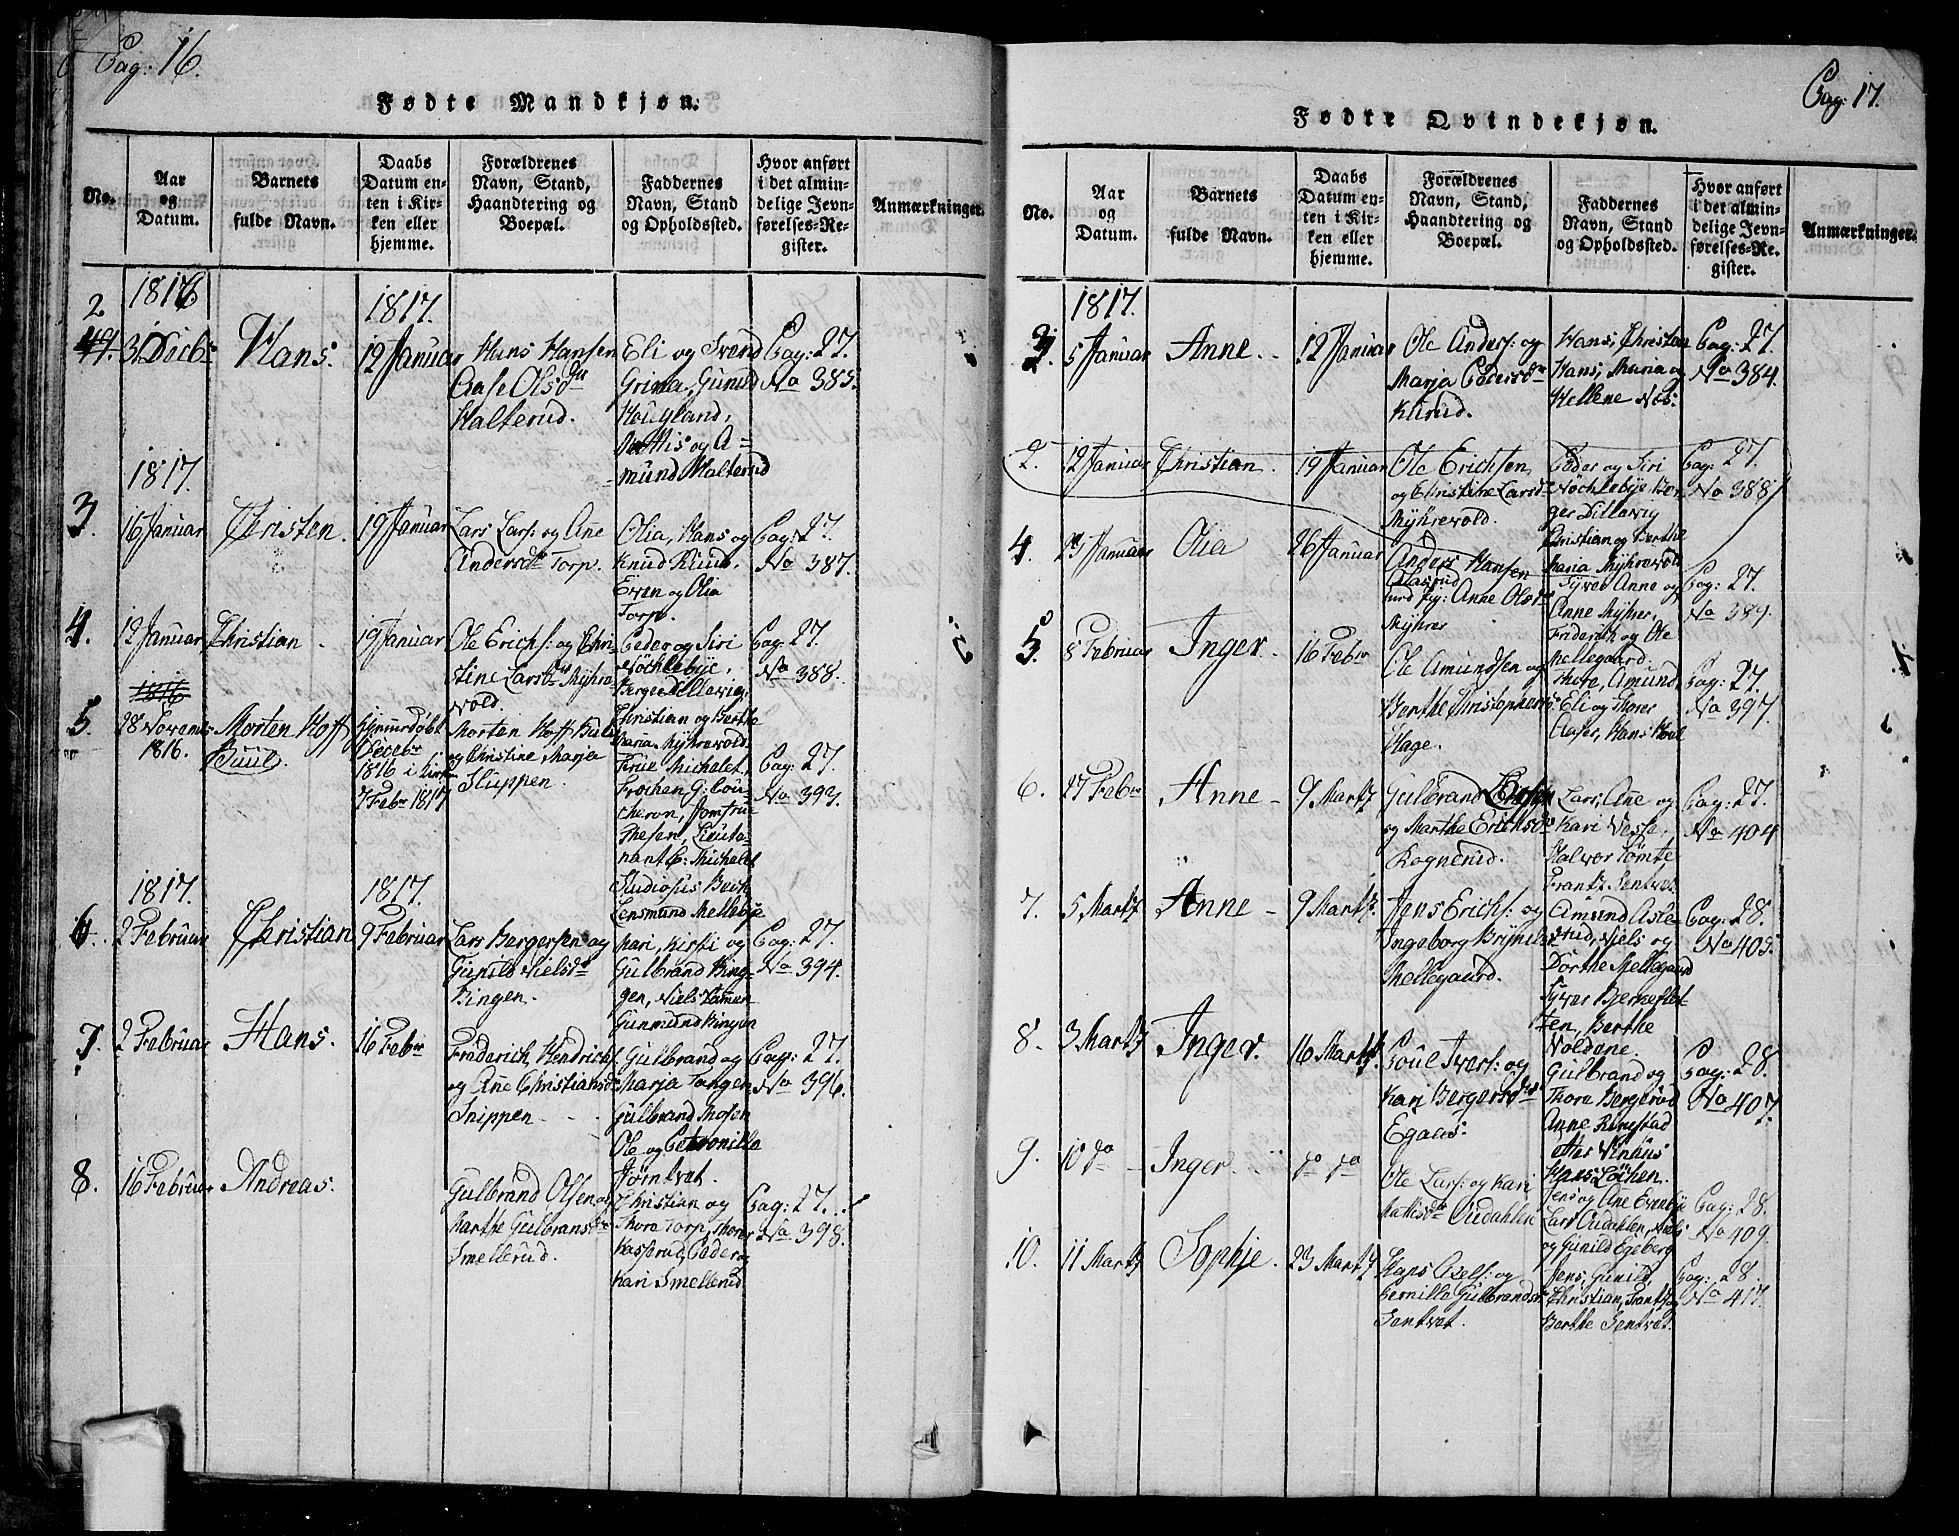 Pag: 16.
Fødte Mandkjøn.
No.
Aar
og
Datum.
Barnets
fulde Navn.
Daabs
Datum en-
ten i Kir-
ken eller
hjemme.
Forældrenes
Navn, Stand,
Haandtering og
Boepæl.
Faddernes
Navn, Stand
og Opholdssted.
Hvor anført
i det almin-
delige Jevn-
førelses-Re-
gister.
Anmærkninger.
1816
1817.
2
31 Decbr
Hans.
12 Januar
Hans Hansen
Aase Olsdr
Halterud.
Eli og Svend
Grima, Gunild
Hougland,
Mattis og A=
mund Halterud
Pag: 27.
No 385.
1817.
3.
16 Januar
Christen.
19 Januar
Lars Lars: og Ane
Andersdr Torp.
Olia, Hans og
Knud Ruud,
Even og Olia
Torp.
Pag: 27.
No 387.
4.
12 Januar
Christian
19 Januar
Ole Erichs: og Chri
stine Larsdr Myhre
vold.
Peder og Siri
Nöchlebye,
Berger Dillevig,
Christian og Berthe
Maria Myhrevold.
Pag: 27.
No 388.
5.
28 Novemb
1816.
Morten Hoff
Buul.
Hjemmedöbt
Decebr
1816 i Kirk
7 Febr 1817
Morten Hoff Buul
og Christine Marja
Sluppen.
Frue Michelet,
Frøchen G: Cou-
cheron, Jomfru
Thesen, Lieute-
nant C: Michelet
Studiosus Bech
Lensmand Mellebye
Pag: 27.
No 393.
1817.
1817.
6.
2 Februar
Christian
9 Februar
Lars Bergersen og
Gunild Nielsdr
Bingen.
Kari, Kirsti og
Gulbrand Bin-
gen, Niels
Gunmund Bingen
Pag: 27.
No 394.
7.
2 Februar
Hans.
16 Febr
Friderich Hendrichs
og Ane Christiansdr
Snippen
Gulbrand og
Marja Tangen
Gulbrand Mosen
Ole og Petronille
Jörntvet.
Pag: 27.
No 396.
8.
16 Februar
Andreas.
Gulbrand Olsen og
Marthe Gulbransdr
Smellerud.
Christian og
Thore Torp, Thorer
Kasserud, Peder og
Kari Smellerud
Pag: 27.
No 398.
Pag: 17.
Fødte Qvindekjøn.
No.
Aar
og
Datum.
Barnets
fulde Navn.
Daabs
Datum en-
ten i Kir-
ken eller
hjemme.
Forældrenes
Navn, Stand,
Haandtering og
Boepæl.
Faddernes
Navn, Stand
og Opholdssted.
Hvor anført
i det almin-
delige Jevn-
førelses-Re-
gister.
Anmærkninger.
1817.
3
5 Januar
Anne
12 Januar
Ole Anders: og
Marja Pedersdr
Klurud.
Hans, Christian
Hans, Maria og
Hellene Næs
Pag: 27.
No 384.
2.
12 Januar
Christian.
19 Januar
Ole Erichsen
og Christine Larsd
Myhrevold.
Peder og Siri
Nöchlebye Ber
ger Dillevig
Christian og Berthe
Maria Myhrevold
Pag: 27.
No 388.
4.
Januar
Olia
26 Januar
Anders Hansen
Aaserud
und pig: Anne Olsdr
Myhrer
Syver Anne og
Anne Myhrer,
Friderich og Ole
Mellegaard.
Pag: 27
No 389.
5.
8 Februar
Inger.
16 Febr
Ole Amundsen og
Berthe Christophers
Hage.
Thore, Amund,
Eli og Thorer
Aaser, Hans
Pag: 27.
No 397.
6.
27 Febr
Anne
9 Martz
Gulbrand Larsen
og Marthe Erichsdr
Rognerud.
Lars, Ane og
Kari Vesse,
Halvor Tömte
Frantz Sentvet
Pag: 27.
No 404
7.
5 Martz
Anne
9 Martz.
Jens Erichs: og
Ingeborg Brynils
Mellegaard.
Amund Asle
rud, Niels og
Dorthe Mellegaard
Syver Bierkeflet
ten, Berthe
Voldene.
Pag: 28.
No 405.
8.
3 Martz
Inger.
16 Martz.
Poul Ivers: og
Kari Bergersdr
Egaes:
Gulbrand og
Thore Bergerud
Anne Rimstad
Hans Löchen.
Pag: 28.
No 407.
9.
10 do
Inger.
do do
Ole Lars: og Kari
Mattisdr Oudahlen
Jens og Ane Evenbye
Lars Oudahlen, Niels
og Gunild Egeberg
Pag: 28.
No 409.
10.
11 Martz
Sophie.
23 Martz
Hans Axels: og
Pernille Gulbrandsd
Sentvet.
Jens, Gunild,
Christian, Frantz og
Berthe Sentvet.
Pag: 28
No 417.